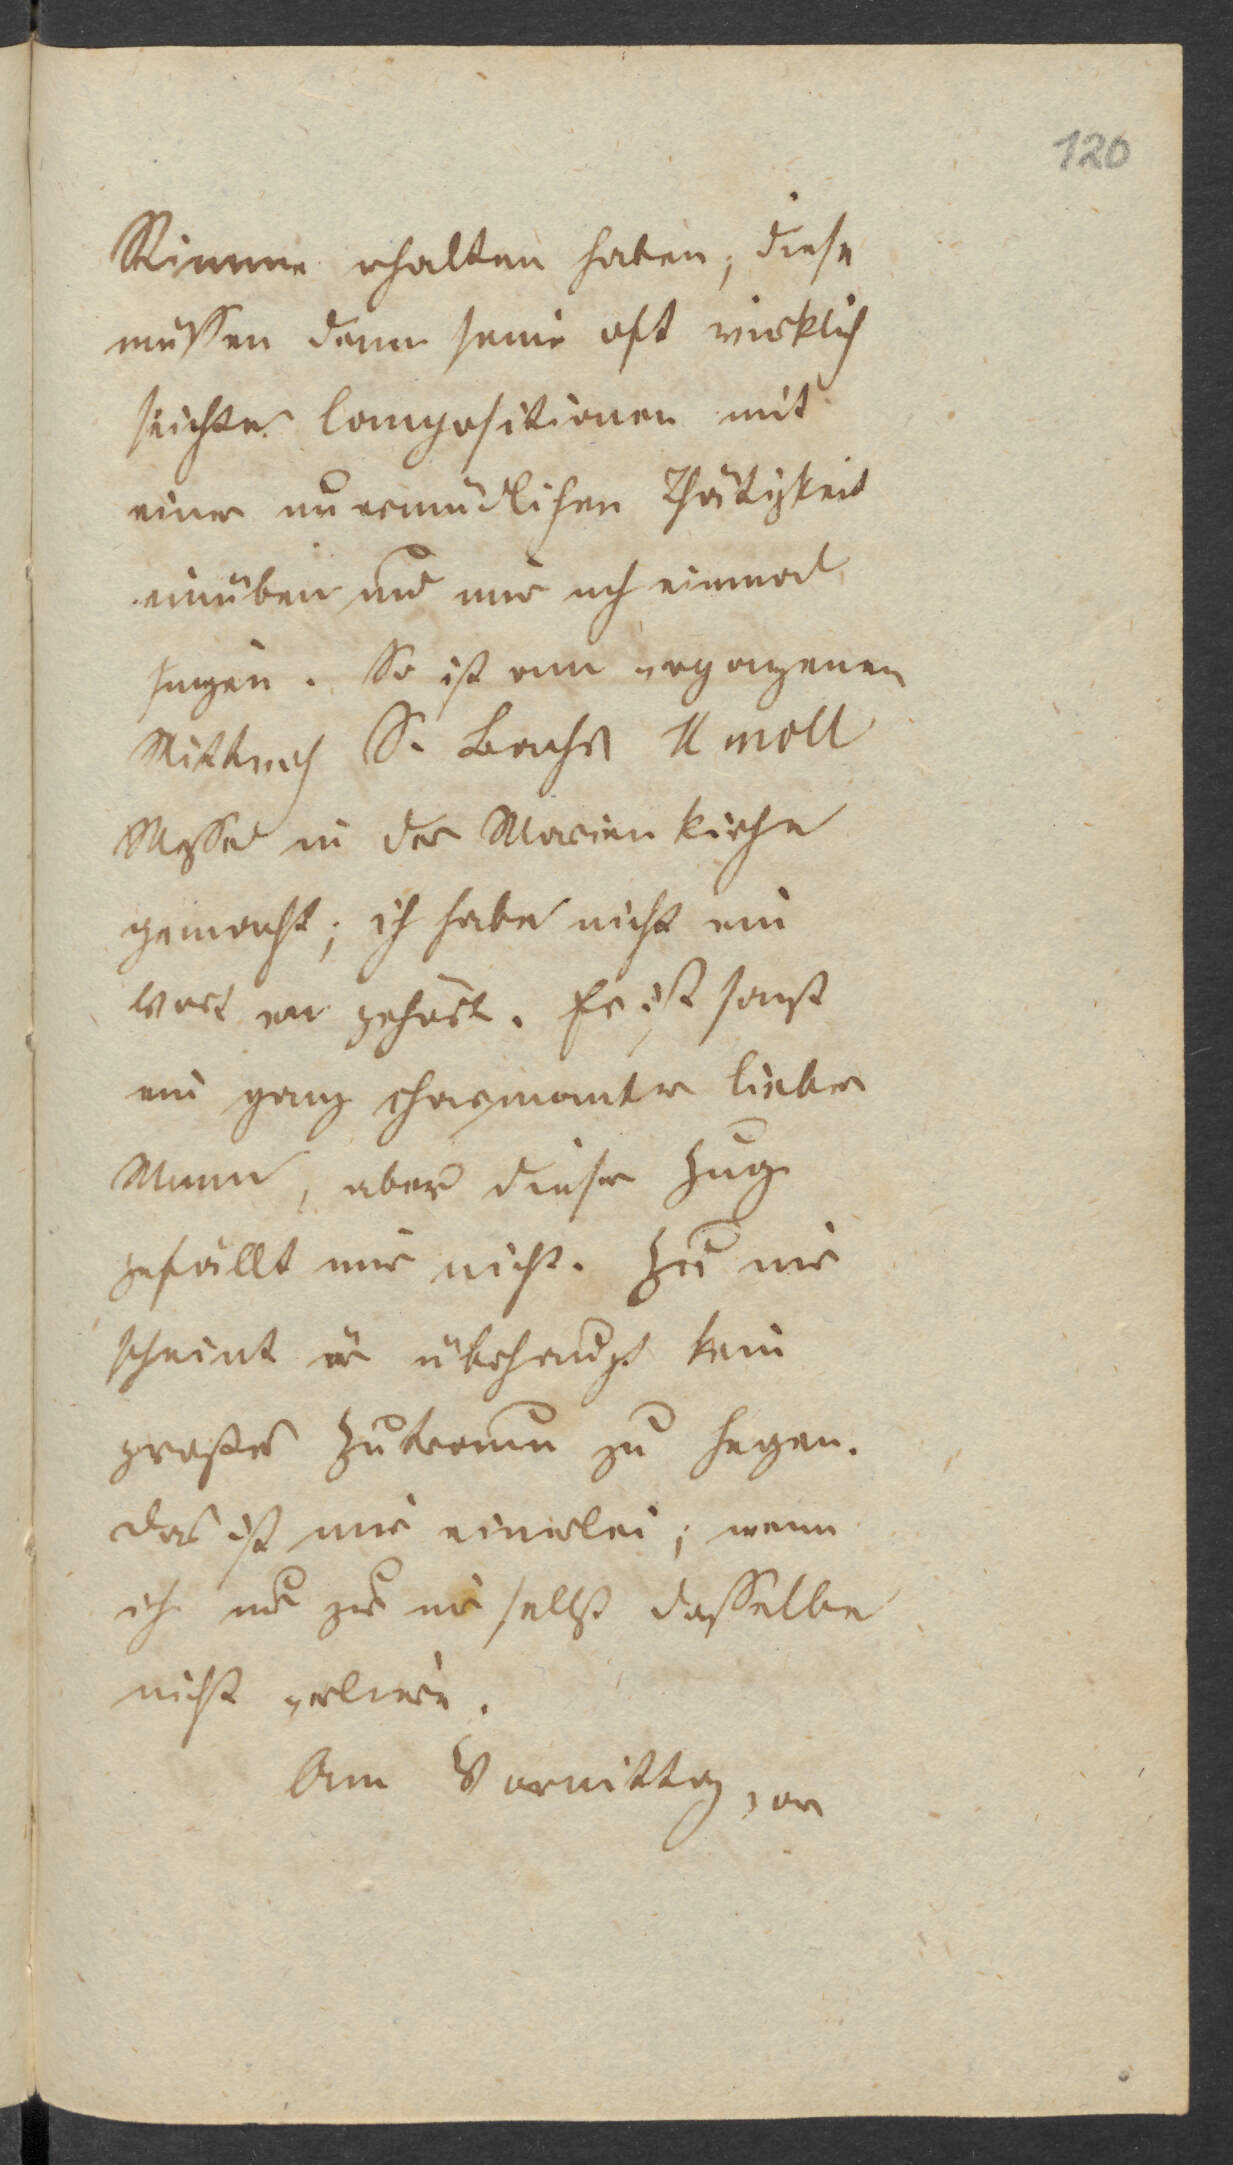 120
Stimme erhalten haben, diese
müssen dann seine oft wirklich
seichten Compositionen mit
einer unermüdlichen Thätigkeit
einüben und mir noch einmal
singen. So ist am vergangenen
Mittwoch S. Bachs H moll
Messe in der Marienkirche
gemacht; ich habe nicht ein
Wort gehört. Er ist sonst
ein ganz charmanter lieber
Mann, aber dieser Zug
gefällt mir nicht. Zu mir
scheint er überhaupt kein
großes Zutrauen zu hegen.
Das ist mir einerlei; wenn
ich nur zu mir selbst dasselbe
nicht verliere.
Am Vormittag vor